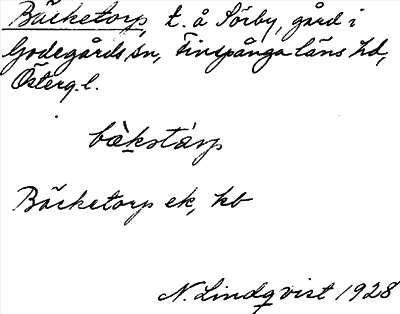 Bäcketorp, t. å Sörby, gård i
Godegårds sn, Finspånga läns hd,
Österg.l.
bàkstárp
Bäcketorp ek, kb
N. Lindqvist 1928